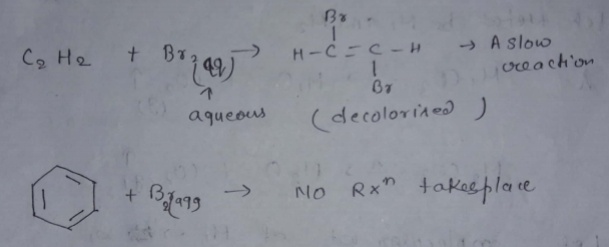 Br
C2 H2 + Br2(aq) → H - C = C - H → A slow reaction
Br
↑
aqueous (decolorised)
+ Br2(aqq → NO Rxn takesplace